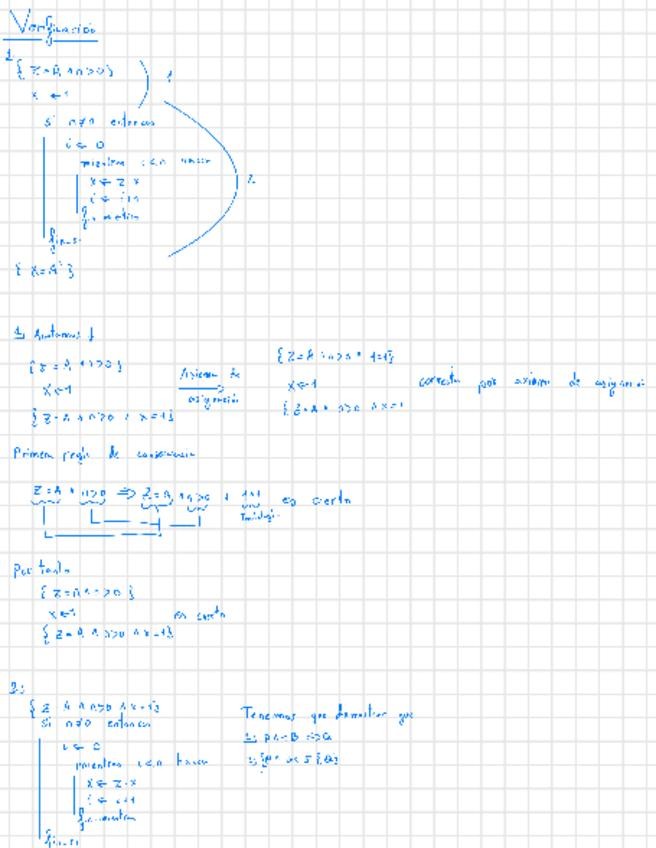 Verificación
1.
{ Z=A ∧ n>0 }
x ← 1
si n≠0 entonces
i ← 0
mientras i<n hacer
x ← z·x
i ← i+1
f. mientras
fin si
{ X=A }
1
2
1:
{ Z=A ∧ n>0 }
x ← 1
{ Z=A ∧ n>0 ∧ x=1 }
Axioma de
asignación
{ Z=A ∧ n>0 ∧ 1=1 }
x ← 1
{ Z=A ∧ n>0 ∧ x=1
correcto por axioma de asignación
Primera regla de consecuencia
Z=A ∧ n>0 ⇒ Z=A ∧ n>0 ∧ 1=1 es cierto
Tautología
Por tanto
{ Z=A ∧ n>0 }
x ← 1
es cierto
{ Z=A ∧ n>0 ∧ x=1 }
2:
{ Z A ∧ n>0 ∧ x=1 }
si n≠0 entonces
i ← 0
mientras i<n hacer
x ← z·x
i ← i+1
f. mientras
fin si
Tenemos que demostrar que
1: P∧¬B ⇒ Q